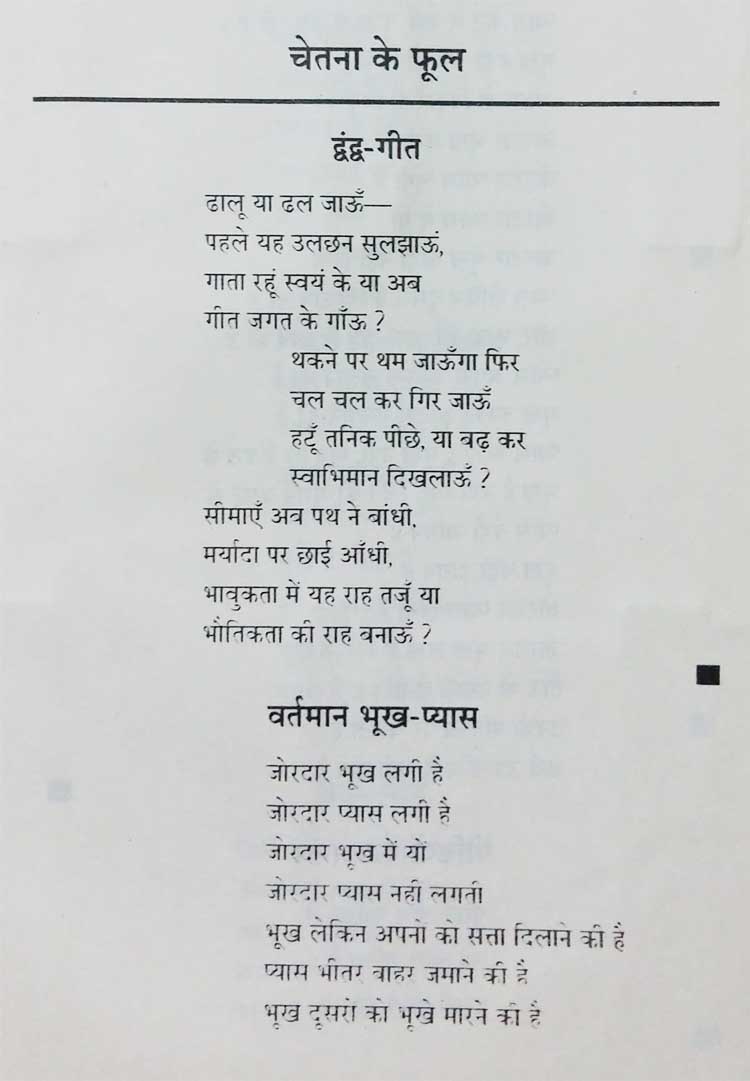 चेतना के फूल
द्वंद्व-गीत
ढालू या ढल जाऊँ—
पहले यह उलछन सुलझाऊं,
गाता रहूं स्वयं के या अब
गीत जगत के गाँऊ ?
थकने पर थम जाऊँगा फिर
चल चल कर गिर जाऊँ
हटूँ तनिक पीछे, या बढ़ कर
स्वाभिमान दिखलाऊँ ?
सीमाएँ अब पथ ने बांधी,
मर्यादा पर छाई आँधी,
भावुकता में यह राह तजूँ या
भौतिकता की राह बनाऊँ ?
वर्तमान भूख-प्यास
जोरदार भूख लगी है
जोरदार प्यास लगी है
जोरदार भूख में यों
जोरदार प्यास नहीं लगती
भूख लेकिन अपनो को सत्ता दिलाने की है
प्यास भीतर बाहर जमाने की है
भूख दूसरों को भूखे मारने की है